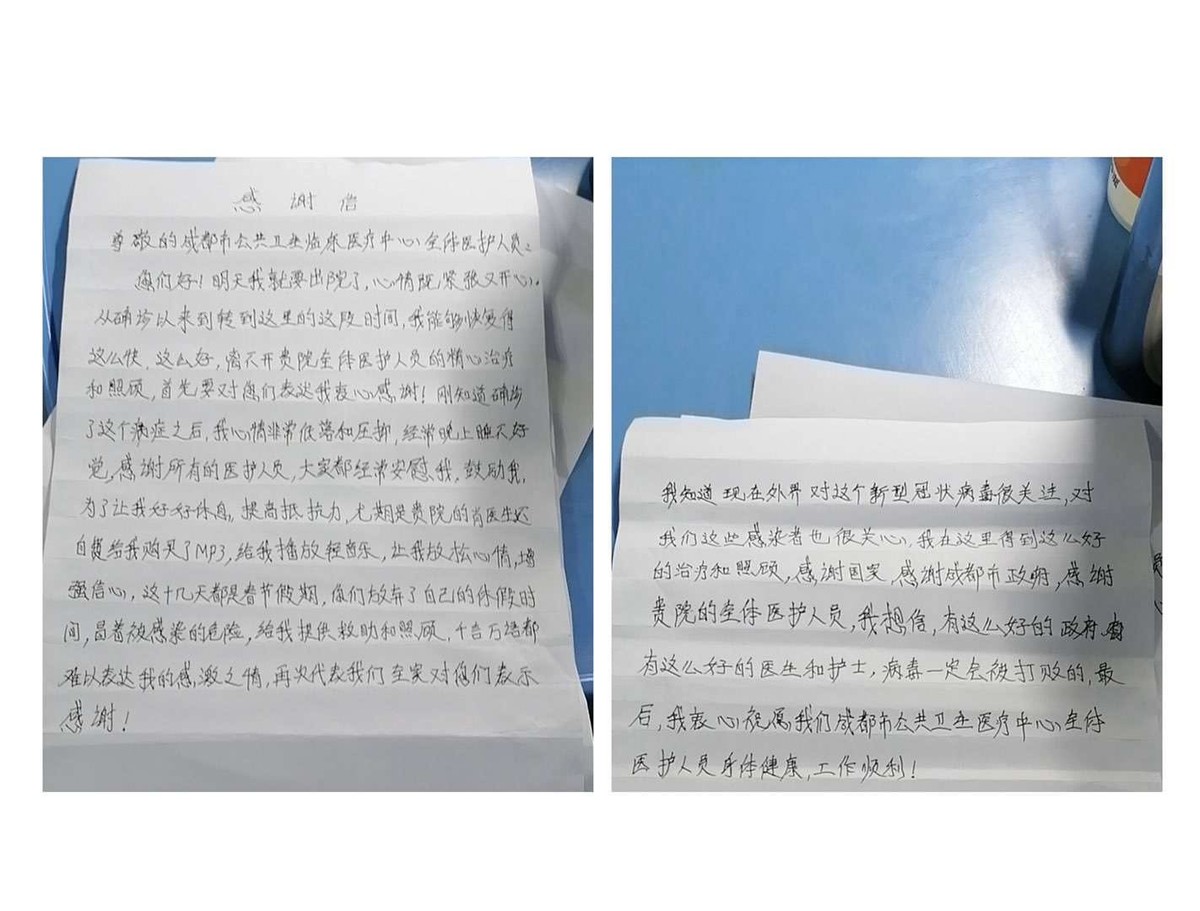 感谢信
尊敬的成都市公共卫生临床医疗中心全体医护人员：
您们好！明天我就要出院了，心情既紧张又开心。
从确诊以来到转到这里的这段时间，我能够恢复得
这么快，这么好，离不开贵院全体医护人员的精心治疗
和照顾，首先要对您们表达我衷心感谢！刚知道确诊
了这个病症之后，我心情非常低落和压抑，经常晚上睡不好
觉，感谢所有的医护人员，大家都经常安慰我，鼓励我，
为了让我好好休息，提高抵抗力，尤期是贵院的肖医生还
自费给我购买了MP3，给我播放轻音乐，让我放松心情，增
强信心，这十几天都是春节假期，您们放弃了自己的休假时
间，冒着被感染的危险，给我提供救助和照顾，千言万语都
难以表达我的感激之情，再次代表我们全家对您们表示
感谢！
我知道现在外界对这个新型冠状病毒很关注，对
我们这些感染者也很关心，我在这里得到这么好
的治疗和照顾，感谢国家，感谢成都市政府，感谢
贵院的全体医护人员，我想信，有这么好的政府，
有这么好的医生和护士，病毒一定会被打败的，最
后，我衷心祝愿我们成都市公共卫生医疗中心全体
医护人员身体健康，工作顺利！